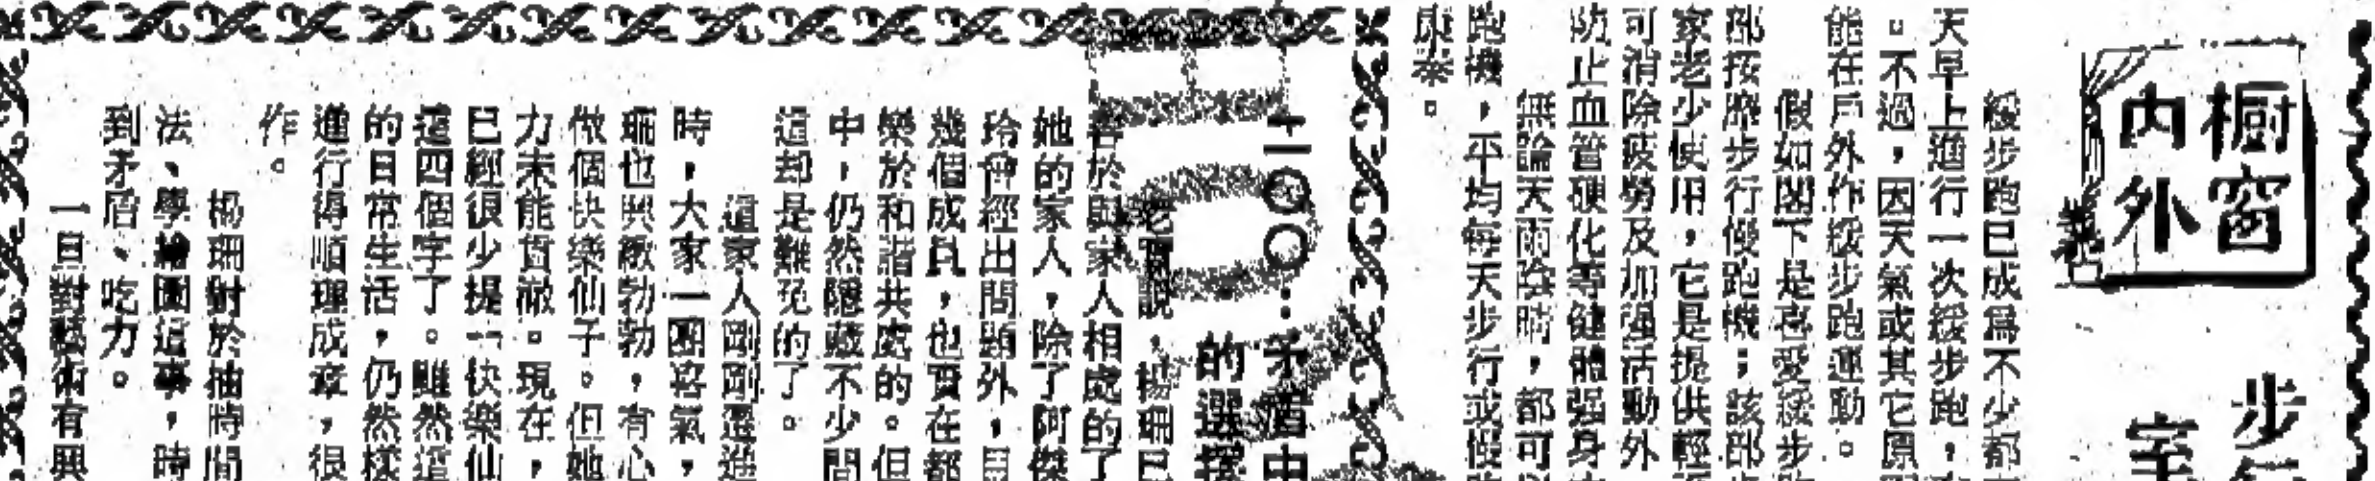 櫥窗
內外
步
室
緩步跑已成爲不少都
天早上進行一次緩步跑，
。不過，因天氣或其它原
能在戶外作緩步跑運動。
假如閣下是喜愛緩步
部按摩步行慢跑機；該部
家老少使用，它是提供輕
可消除疲勞及加强活動外
防止血管硬化等健體强身
無論天雨陰時，都可以
跑機，平均每天步行或慢
康泰。
二〇〇：矛盾中
的選擇
老實說，楊珊已
善於與家人相處的了
她的家人，除了阿傑
玲曾經出問題外，目
幾個成員，也實在都
樂於和諧共處的。但
中，仍然隱藏不少問
這却是難免的了。
這家人剛剛還進
時，大家一團喜氣，
珊也興緻勃勃，有心
做個快樂仙子。但她
力未能貫徹。現在，
已經很少提「快樂仙
這四個字了。雖然這
的日常生活，仍然樣
進行得順理成章，很
作。
楊珊對於抽時間
法、學繪圖這事，時
到矛盾、吃力。
一旦對藝術有興